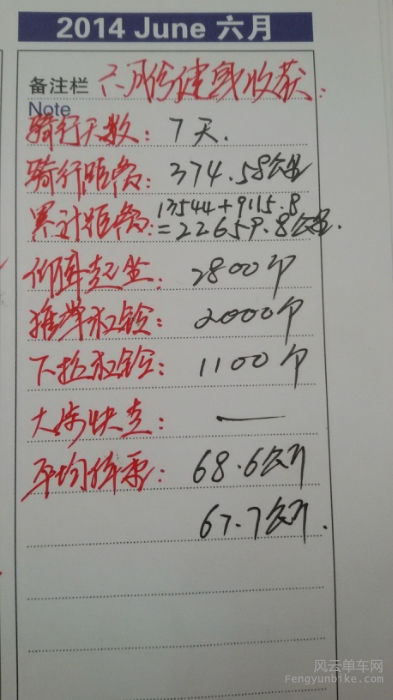 2014 June 六月
备注栏 六月份健身收获:
Note
骑行天数: 7天.
骑行距离: 374.58公里
累计距离: 13544+9115.8
=22659.8公里.
仰卧起坐: 2800个
推举杠铃: 2000个
下拉杠铃: 1100个
大步快走: —
平均体重: 68.6公斤
67.7公斤.
风云单车网
Fengyunbike.com